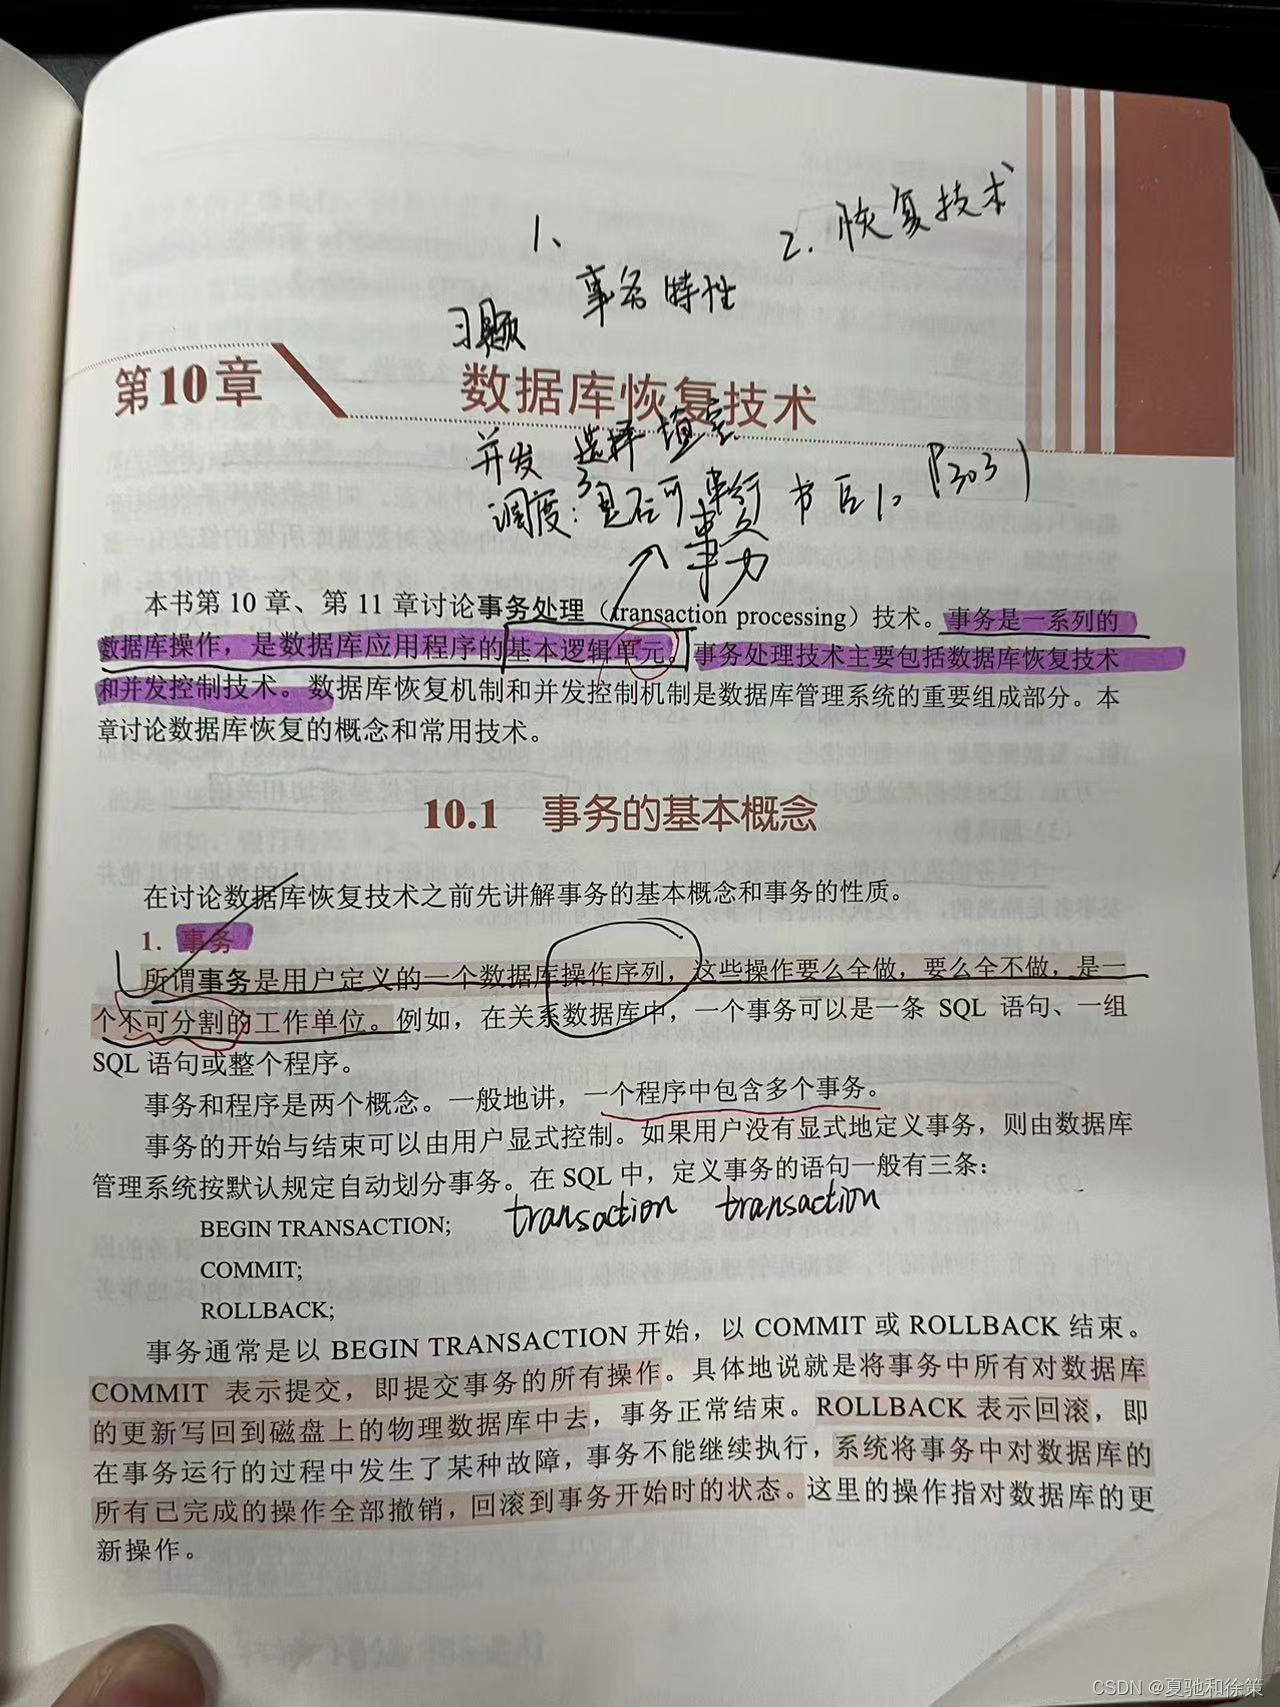 1、
2. 恢复技术
事务特性
习题
第10章 数据库恢复技术
并发 选择 填空
调度:是否可串行 书后1。(303)
事务
本书第 10 章、第 11 章讨论事务处理（transaction processing）技术。事务是一系列的
数据库操作，是数据库应用程序的基本逻辑单元。事务处理技术主要包括数据库恢复技术
和并发控制技术。数据库恢复机制和并发控制机制是数据库管理系统的重要组成部分。本
章讨论数据库恢复的概念和常用技术。
10.1 事务的基本概念
在讨论数据库恢复技术之前先讲解事务的基本概念和事务的性质。
1. 事务
所谓事务是用户定义的一个数据库操作序列，这些操作要么全做，要么全不做，是一
个不可分割的工作单位。例如，在关系数据库中，一个事务可以是一条 SQL 语句、一组
SQL 语句或整个程序。
事务和程序是两个概念。一般地讲，一个程序中包含多个事务。
事务的开始与结束可以由用户显式控制。如果用户没有显式地定义事务，则由数据库
管理系统按默认规定自动划分事务。在 SQL 中，定义事务的语句一般有三条：
BEGIN TRANSACTION; transaction transaction
COMMIT;
ROLLBACK;
事务通常是以 BEGIN TRANSACTION 开始，以 COMMIT 或 ROLLBACK 结束。
COMMIT 表示提交，即提交事务的所有操作。具体地说就是将事务中所有对数据库
的更新写回到磁盘上的物理数据库中去，事务正常结束。ROLLBACK 表示回滚，即
在事务运行的过程中发生了某种故障，事务不能继续执行，系统将事务中对数据库的
所有已完成的操作全部撤销，回滚到事务开始时的状态。这里的操作指对数据库的更
新操作。
CSDN @夏驰和徐策